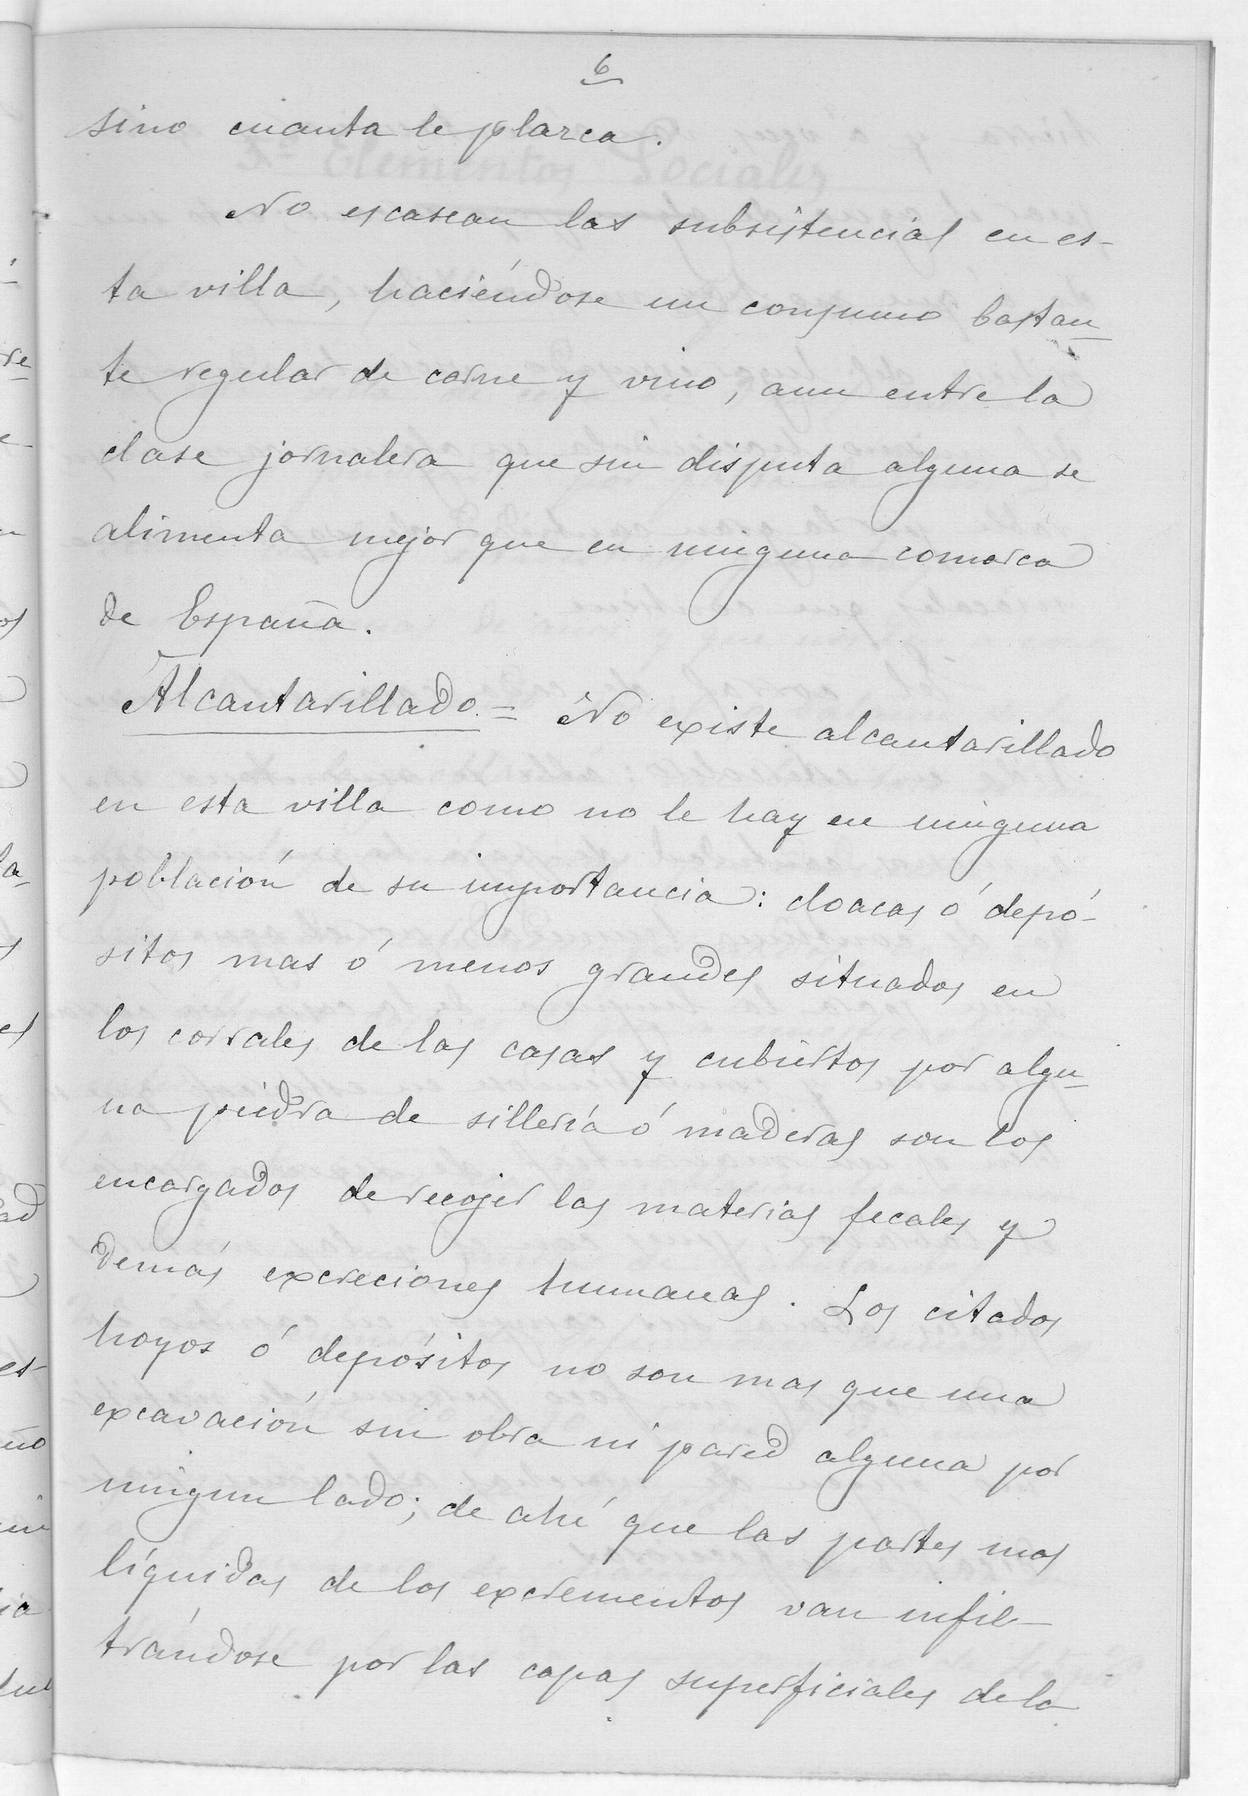 6
sino cuanta le plazca.
No escasean las subsistencias en es-
ta villa, haciéndose un consumo bastan-
te regular de carne y vino, aun entre la
clase jornalera que sin disputa alguna se
alimenta mejor que en ninguna comarca
de España.
Alcantarillado.= No existe alcantarillado
en esta villa como no le hay en ninguna
población de su importancia: cloacas ó depó-
sitos mas ó menos grandes situados en
los corrales de las casas y cubiertos por algu-
na piedra de sillería ó maderas son los
encargados de recojer las materias fecales y
demás excreciones humanas. Los citados
hoyos ó depósitos no son mas que una
excavación sin obra ni pared alguna por
ningun lado; de ahí que las partes mas
líquidas de los excrementos van infil-
trándose por las capas superficiales de la